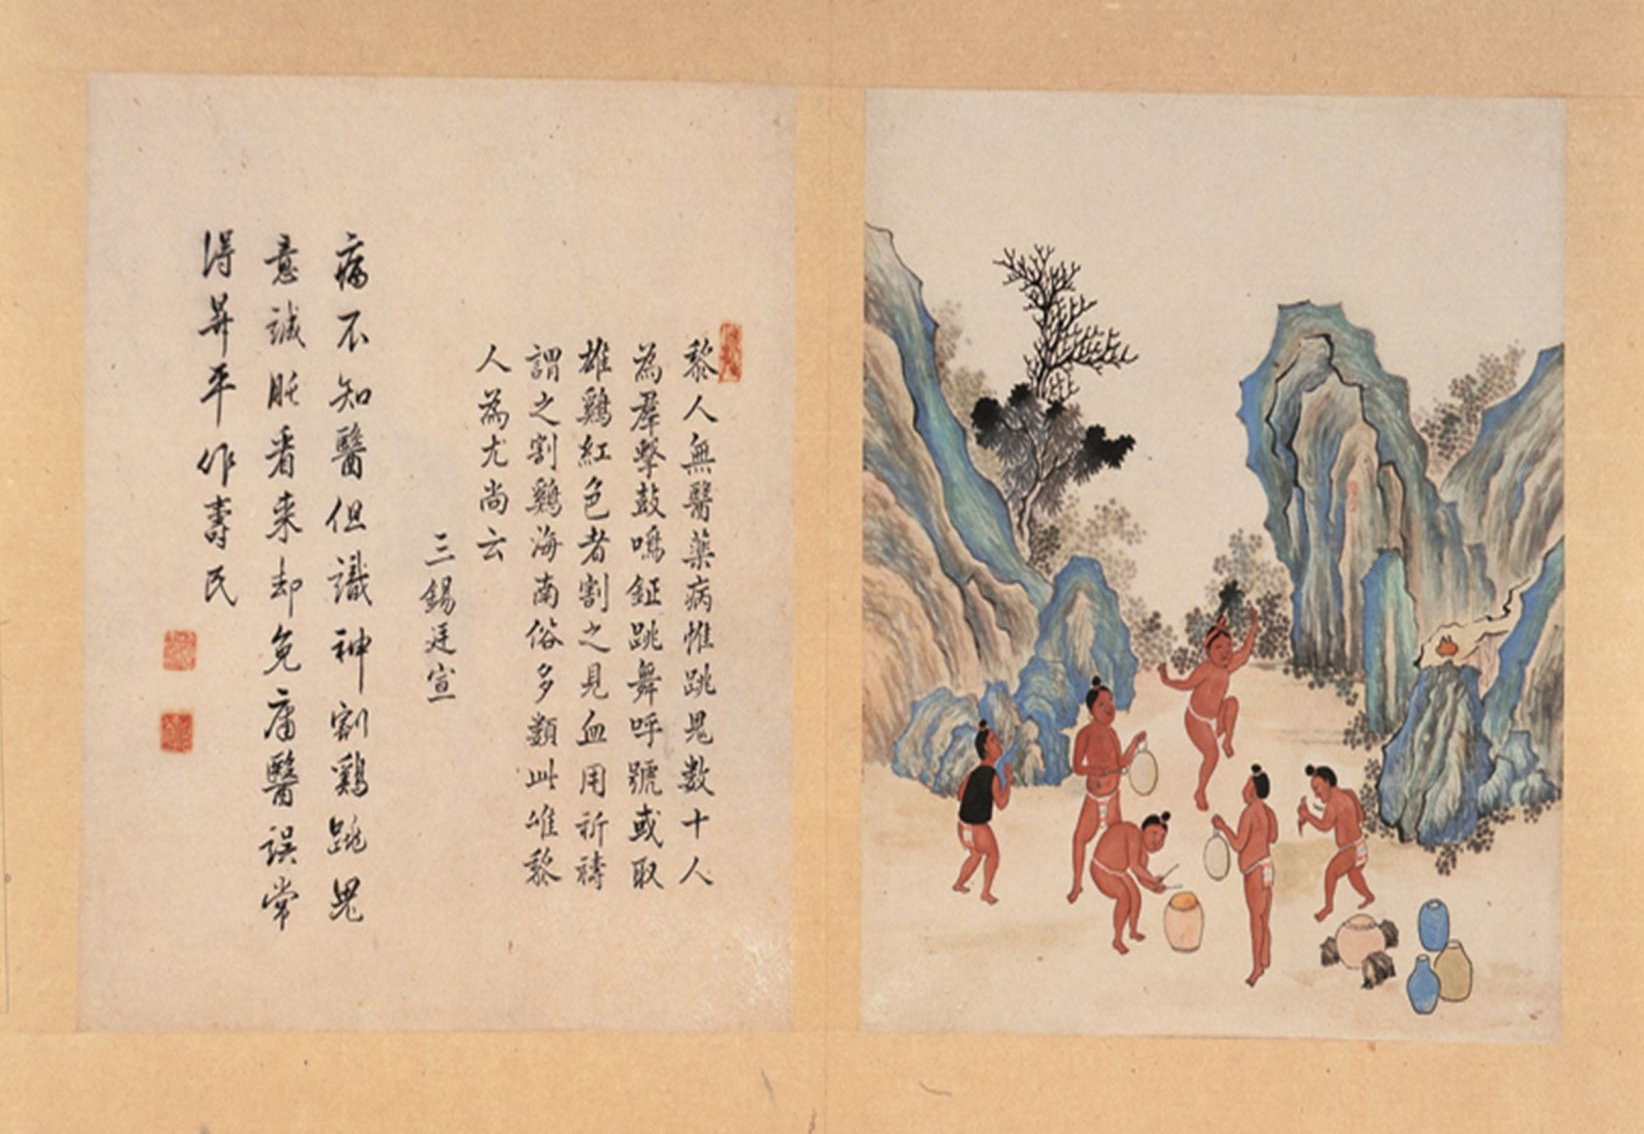 黎人無醫藥病惟跳鬼數十人
為羣擊鼓鳴鉦跳舞呼號或取
雄鷄紅色者割之見血用祈禱
謂之割鷄海南俗多類此唯黎
人為尤尚云
三錫廷宣
病不知醫但識神割鷄跳鬼
意誠肫看來却免庸醫誤常
得昇平作壽民